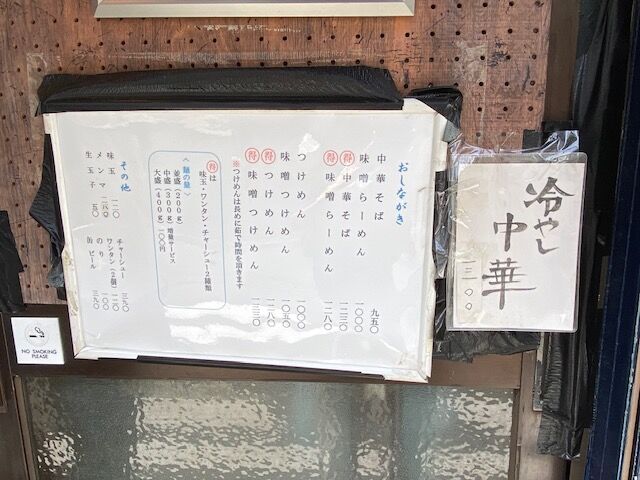 おしながき
中華そば 九五〇
味噌らーめん 一〇〇〇
得 中華そば 一二三〇
得 味噌らーめん 一二八〇
つけめん 一〇〇〇
味噌つけめん 一〇五〇
得 つけめん 一二八〇
得 味噌つけめん 一三三〇
※つけめんは長めに茹で時間を頂きます
得は
味玉・ワンタン・チャーシュー2種類
〈麺の量〉
並盛(200g)
中盛(300g)増量サービス
大盛(400g)一〇〇円
その他
味玉 一二〇
メンマ 二八〇
生玉子 五〇
チャーシュー 三九〇
ワンタン(2個) 一二〇
のり 一〇〇
缶ビール 三九〇
冷やし
中華
一三〇〇
NO SMOKING
PLEASE